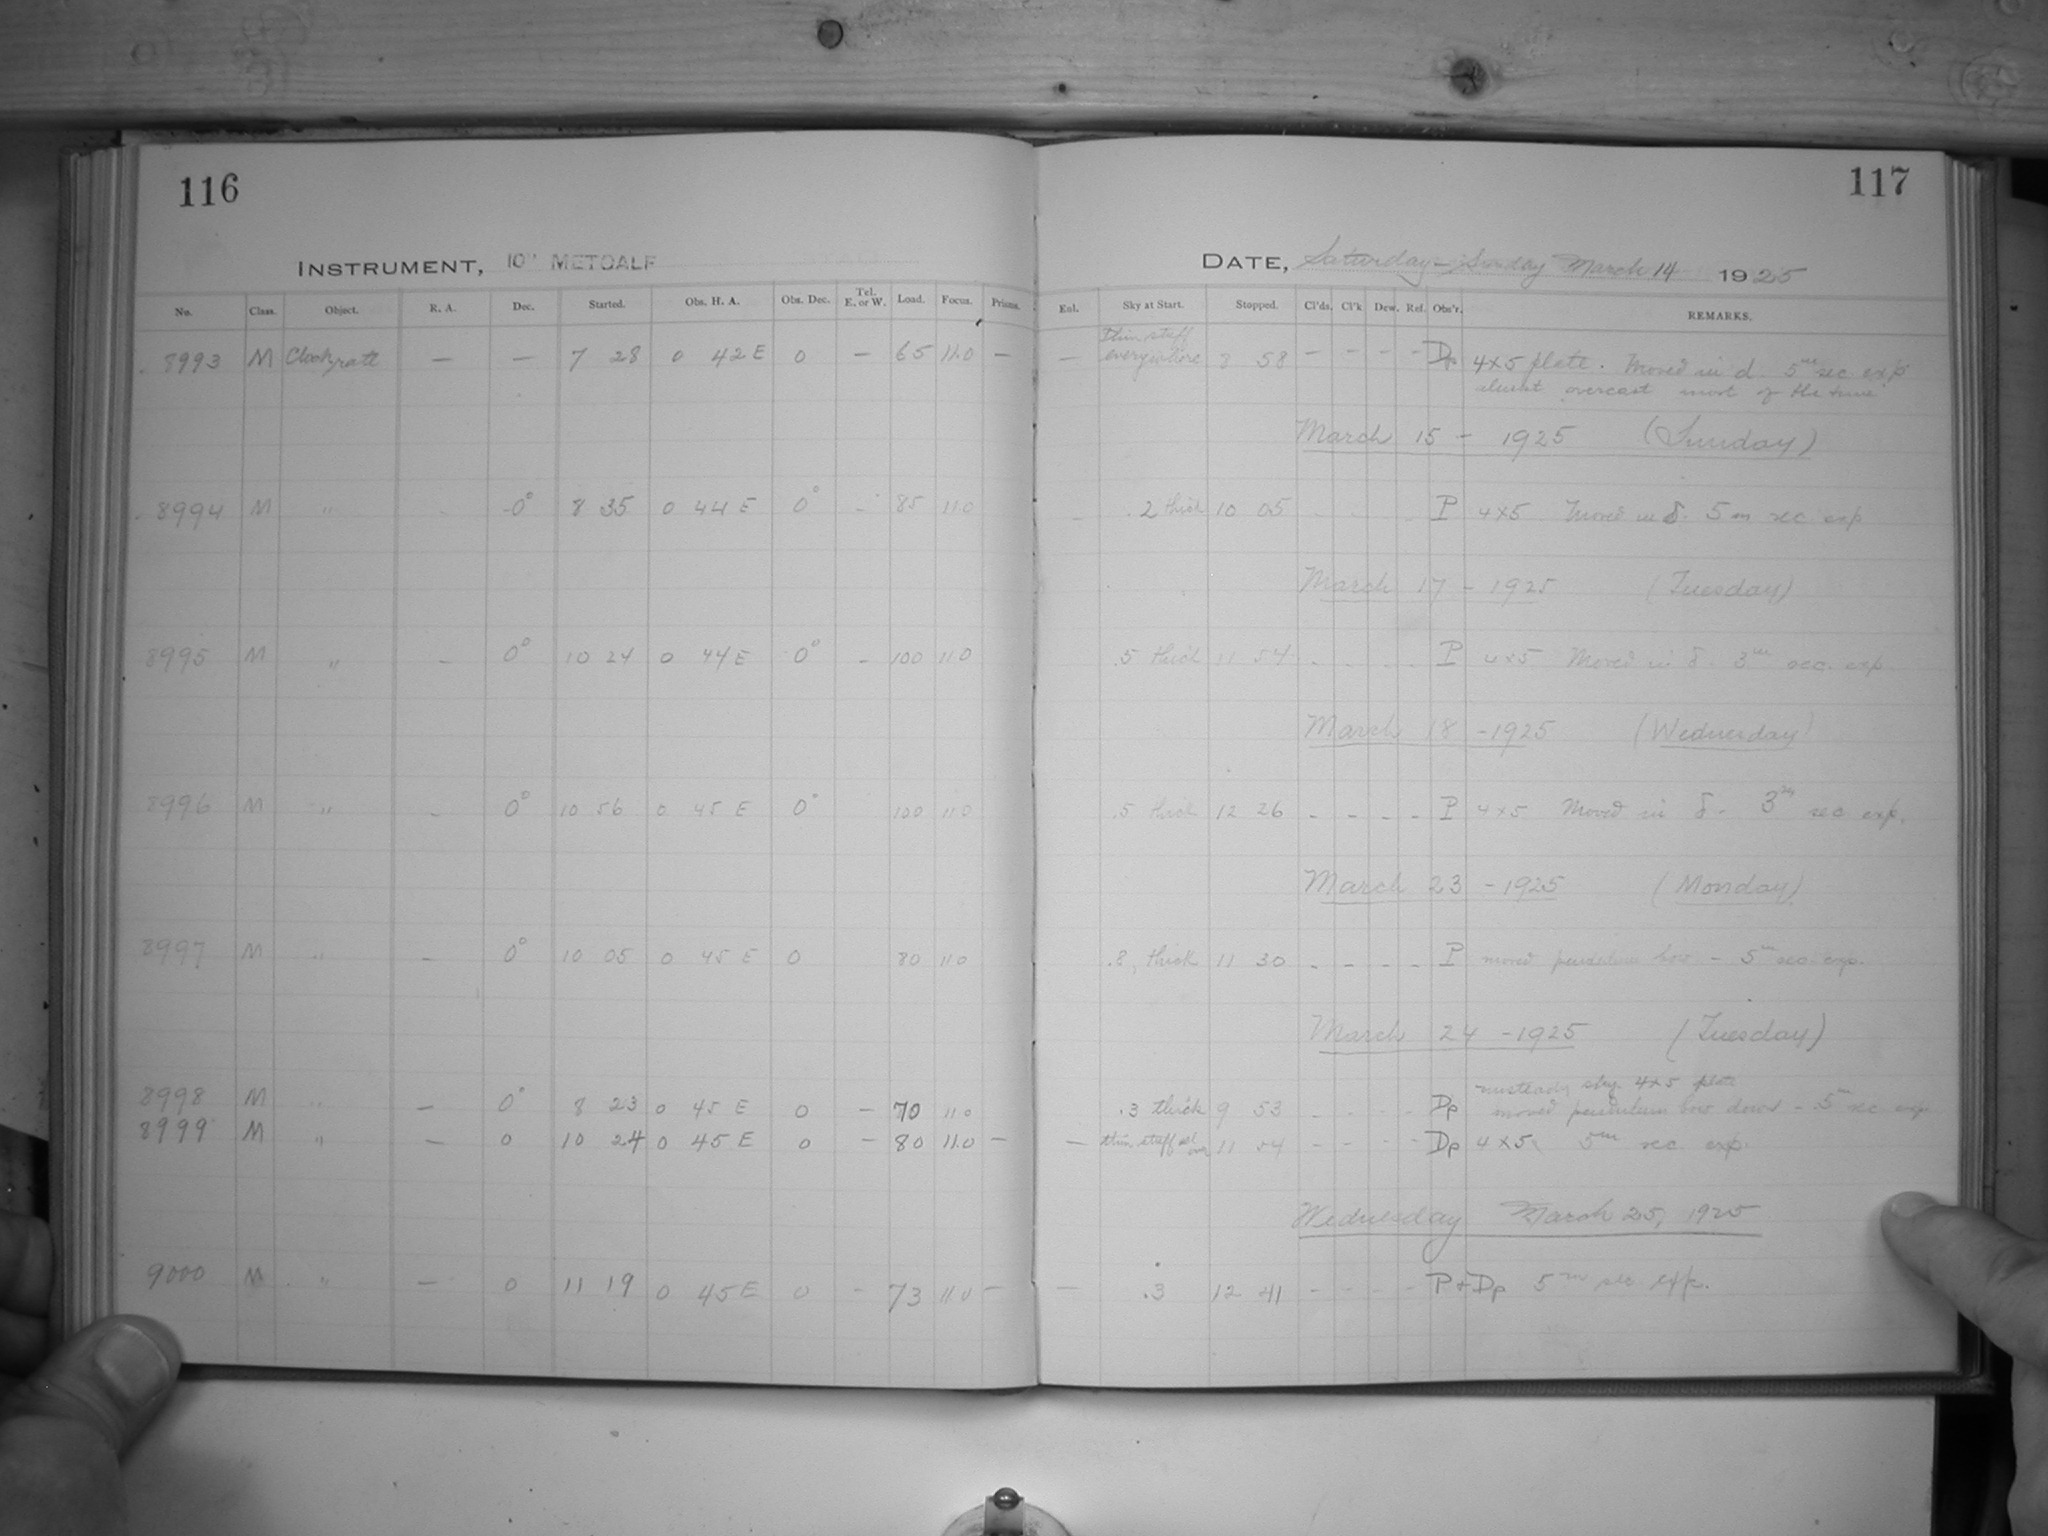 116
117
INSTRUMENT, 10" METCALF
DATE, Saturday - Sunday March 14 1925
No. Class. Object. R. A. Dec. Started. Obs. H. A. Obs. Dec. Tel. E. or W. Load. Focus. Prisms. Enl. Sky at Start. Stopped. Cl'ds. Cl'k Dew. Rel. Obs'r. REMARKS.
8993 M Clock rate — — 7 28 0 42 E 0 — 65 11.0 — — thin stuff everywhere 8 58 - - - - Dp 4x5 plate. Moved in d. 5m sec exp
almost overcast most of the time
March 15 - 1925 (Sunday)
8994 M " - 0° 8 35 0 44 E 0° - 85 11.0 - .2 thick 10 05 - - - - P 4x5 Moved in δ. 5m sec exp
March 17 - 1925 (Tuesday)
8995 M " - 0° 10 24 0 44 E 0° - 100 11.0 .5 thick 11 54 - - - - P 4x5 Moved in δ. 3m sec. exp.
March 18 - 1925 (Wednesday)
8996 M " - 0° 10 56 0 45 E 0° 100 11.0 .5 thick 12 26 - - - - P 4x5 Moved in δ - 3m sec exp.
March 23 - 1925 (Monday)
8997 M " - 0° 10 05 0 45 E 0 80 11.0 .8, thick 11 30 - - - - P moved pendulum bow - 5m sec. exp.
March 24 - 1925 (Tuesday)
unsteady sky. 4x5 plate
8998 M " — 0° 8 23 0 45 E 0 — 70 11.0 .3 thick 9 53 - - - - Dp moved pendulum bow down - 5m sec exp
8999 M " — 0 10 24 0 45 E 0 — 80 11.0 — — thin stuff all over 11 54 - - - - Dp 4x5 5m sec. exp.
Wednesday March 25, 1925
9000 M " — 0 11 19 0 45 E 0 — 73 11.0 — — .3 12 41 - - - - P + Dp 5m sec exp.